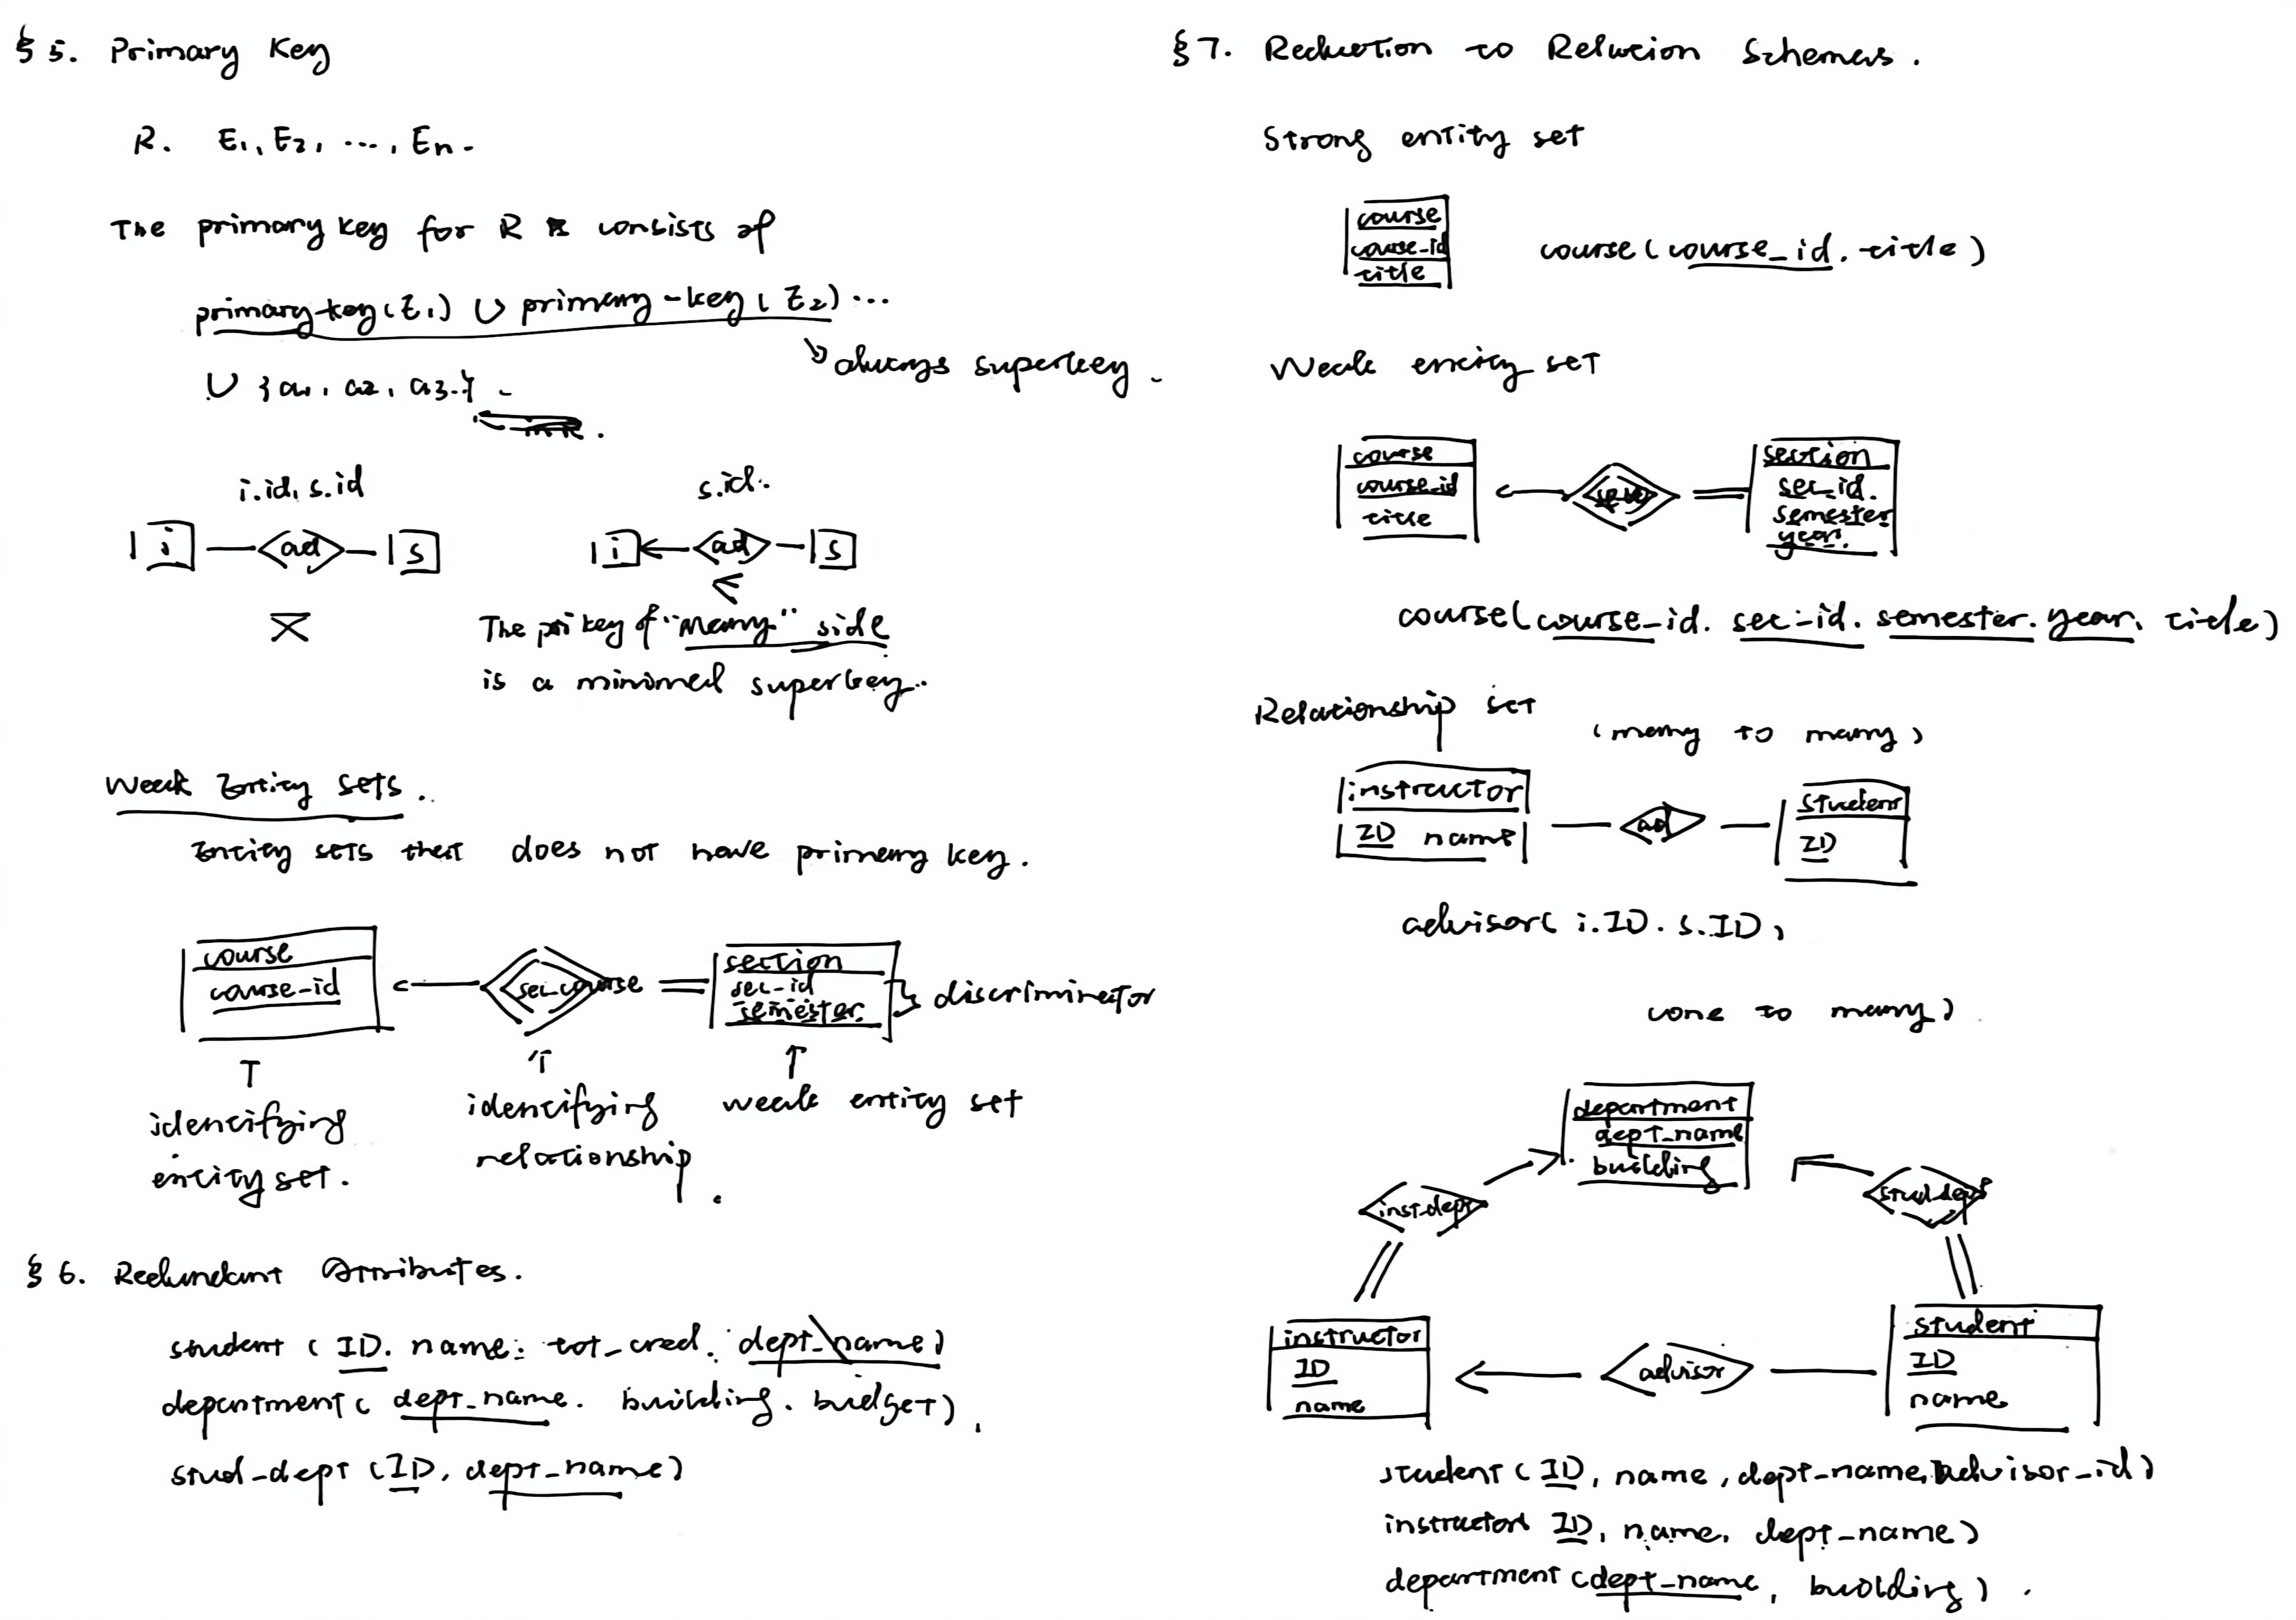 §5. Primary Key
R. E₁, E₂, ..., En.
The primary key for R consists of
primary-key(E₁) ∪ primary-key(E₂) ...
always superkey.
∪ {a₁, a₂, a₃..}.
i.id, s.id
s.id.
i ad s
i ad s
The pri key of "many" side
is a minimal superkey.
Weak Entity sets.
Entity sets that does not have primary key.
course
course-id
sec_course
section
sec-id
semester
discriminator
identifying
entity set.
identifying
relationship.
weak entity set
§6. Redundant Attributes.
student (ID. name. tot_cred. dept_name)
department (dept_name. building. budget).
stud_dept (ID, dept_name)
§7. Reduction to Relation Schemas.
Strong entity set
course
course-id
title
course(course_id. title)
Weak entity set
course
course_id
title
section
sec_id.
semester
year.
course(course_id. sec-id. semester. year. title)
Relationship set
(many to many)
instructor
ID name
ad
student
ID
advisor(i.ID. s.ID)
(one to many)
department
dept_name
building
inst.dept
stud.dept
instructor
ID
name
advisor
student
ID
name
student (ID, name, dept-name, advisor_id)
instructor( ID, name, dept_name)
department (dept_name, building).